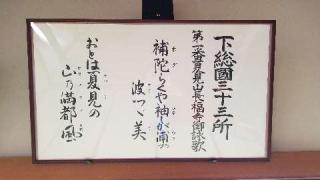 下総國三十三所
第一番夏見山長福寺御詠歌
補陀らくや袖が浦の
波つゞ美
おとは夏見の
山乃満都風